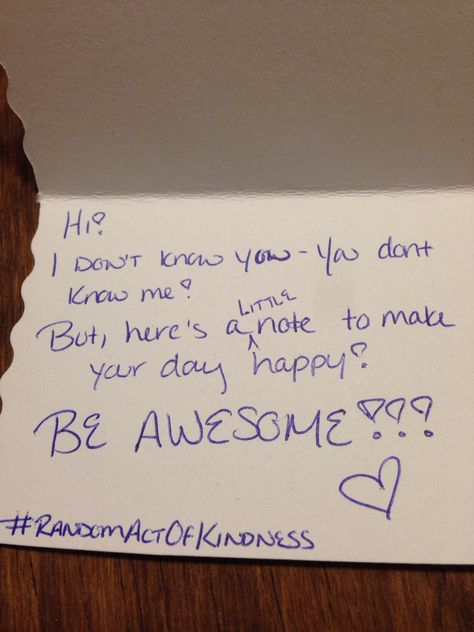 Hi!
I DON'T know you - you dont
know me!
But, here's a LITTLE note to make
your day happy!
BE AWESOME!!!
♡
#RANDOMACTOFKINDNESS